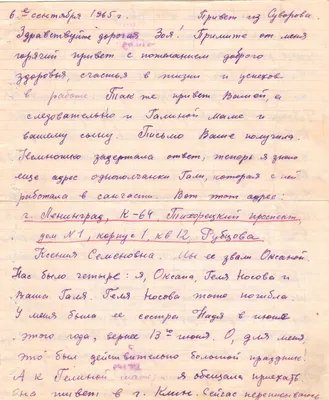 6го сентября 1965 г. Привет из Суворова.
Здравствуйте дорогая Зоя! Примите от меня
горячий привет с пожеланием доброго
здоровья, счастья в жизни и успехов
в работе. Так же привет Вашей, а
следовательно и Галиной маме и
вашему сыну. Письмо Ваше получила
Немножко задержала ответ, теперь я знаю
еще адрес однополчанки Гали, которая с ней
работала в санчасти. Вот этот адрес:
г. Ленинград, К-64, Тихорецкий проспект,
дом №1, корпус 1, кв 12, Рубцова
Ксения Семеновна. Мы ее звали Оксаной.
Нас было четыре: я, Оксана, Геля Носова и
Ваша Галя. Геля Носова тоже погибла
У меня была ее сестра Надя в июне
этого года, вернее 13го июня. О, для меня
это был действительно большой праздник.
А к Гелиной я обещала приехать
она живет в г. Клин. Сейчас переписываюсь